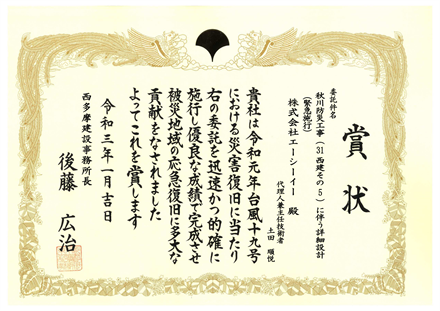 賞状
委託件名
秋川防災工事(31西建その5)に伴う詳細設計
(緊急施行)
株式会社エーシーイー 殿
代理人兼主任技術者
土田 順悦
貴社は令和元年台風十九号
における災害復旧に当たり
右の委託を迅速かつ的確に
施行し優良な成績で完成させ
被災地域の応急復旧に多大な
貢献をなされました
よってこれを賞します
令和三年一月吉日
西多摩建設事務所長
後藤 広治